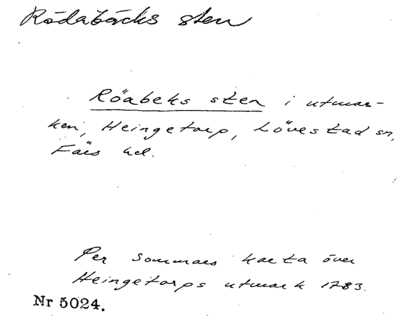 Rödabäcks sten
Röabeks sten i utmar-
ken, Heingetorp, Lövestad sn,
Färs hd.
Per Sommars karta över
Heingetorps utmark 1783.
Nr 5024.